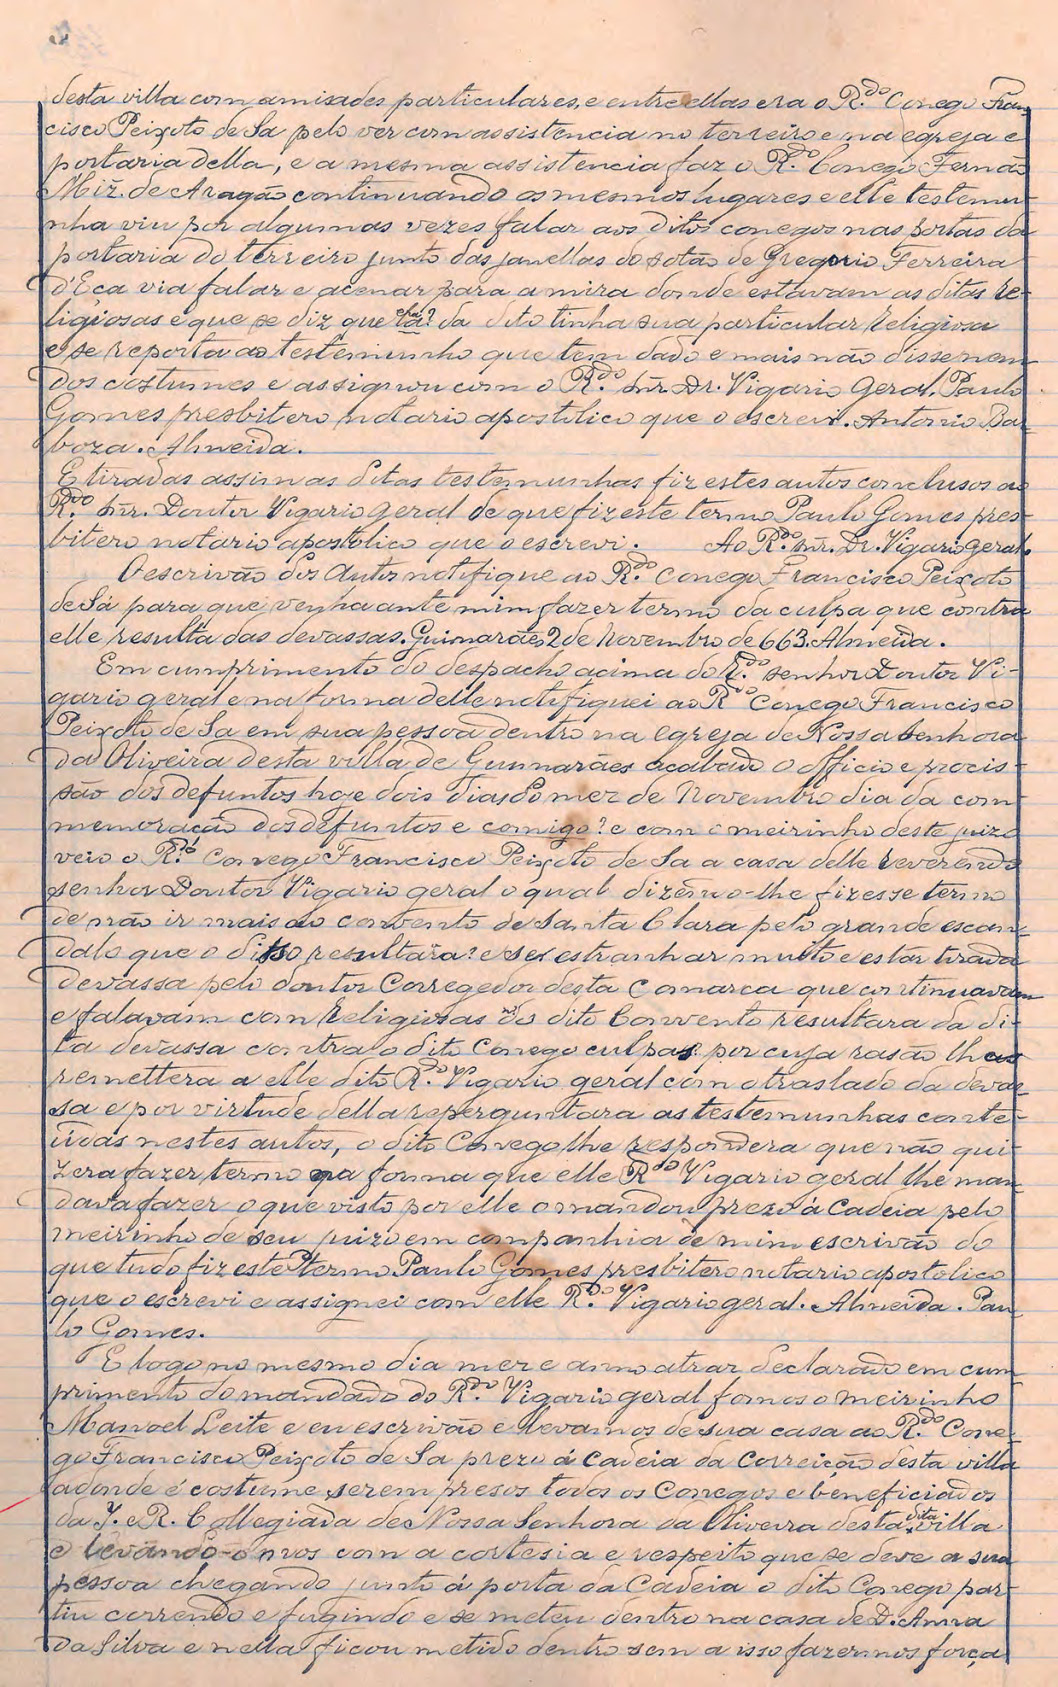 desta villa com amisades particulares, e entre ellas era o R.do Conego Fran
cisco Peixoto de Sa pelo ver com assistencia no terreiro e na egreja e
portaria della, e a mesma assistencia faz o R.do Conego Fernão
Miz. de Aragão continuando os mesmos lugares e elle testemu-
nha viu por algumas vezes falar aos ditos conegos nas portas da
portaria do terreiro junto das janellas do sotão de Gregorio Ferreira
d'Eça via falar e acenar para a mira donde estavam as ditas Re-
ligiosas e que se diz que da dito tinha sua particular Religiosa
e se reporta ao testemunho que tem dado e mais não disse nem
dos costumes e assignou com o R.do Snr. Dr. Vigario Geral, Paulo
Gomes presbitero notario apostolico que o escrevi. Antonio Bar
boza. Almeida.
E tiradas assim as ditas testemunhas fiz estes autos conclusos ao
R.do Snr. Doutor Vigario geral de que fiz este termo Paulo Gomes pres-
bitero notario apostolico que o escrevi. Ao R.do Snr. Dr. Vigario geral.
O escrivão dos Autos notifique ao R.do Conego Francisco Peixoto
de Sá para que venha ante mim fazer termo da culpa que contra
elle resulta das devassas. Guimarães 2 de Novembro de 663. Almeida.
Em cumprimento do despacho acima do R.do senhor Doutor Vi-
gario geral e na forma delle notifiquei ao R.do Conego Francisco
Peixoto de Sa em sua pessoa dentro na egreja de Nossa Senhora
da Oliveira desta villa de Guimarães acabado o officio e procis-
são dos defuntos hoje dois dias do mez de Novembro dia da com-
memoração dos defuntos e comigo? e com o meirinho deste juizo
veio o R.do Conego Francisco Peixoto de Sa a casa delle reverendo
senhor Doutor Vigario geral o qual dizendo-lhe fizesse termo
de não ir mais ao convento de Santa Clara pelo grande escan-
dalo que o disso resultara? e se estranhar muito e estar tirada
devassa pelo doutor Corregedor desta Comarca que continuavam
e falavam com Religiosas do dito Convento resultara da di-
ta devassa contra o dito Conego culpas por cuja rasão lhas
remettera a elle dito R.do Vigario geral com o traslado da devas-
sa e por virtude della reperguntara as testemunhas conte-
údas nestes autos, o dito Conego lhe respondera que não qui-
zera fazer termo na forma que elle R.do Vigario geral lhe man-
dava fazer o que visto por elle o mandou prezo á Cadeia pelo
meirinho de seu juizo em companhia de mim escrivão do
que tudo fiz este termo Paulo Gomes presbitero notario apostolico
que o escrevi e assignei com elle R.do Vigario geral. Almeida. Pau
lo Gomes.
E logo no mesmo dia mez e anno atraz declarado em cum
primento do mandado do R.do Vigario geral fomos o meirinho
Manoel Leite e eu escrivão e levamos de sua casa ao R.do Cone-
go Francisco Peixoto de Sa prezo á Cadeia da Correição desta villa
adonde é costume serem presos todos os Conegos e beneficiados
da I. e R. Collegiada de Nossa Senhora da Oliveira desta dita villa
e levando-o nos com a cortesia e respeito que se deve a sua
pessoa chegando junto á porta da Cadeia o dito Conego par-
tiu correndo e fugindo e se meteu dentro na casa de D. Anna
da Silva e nella ficou metido dentro sem a isso fazermos força